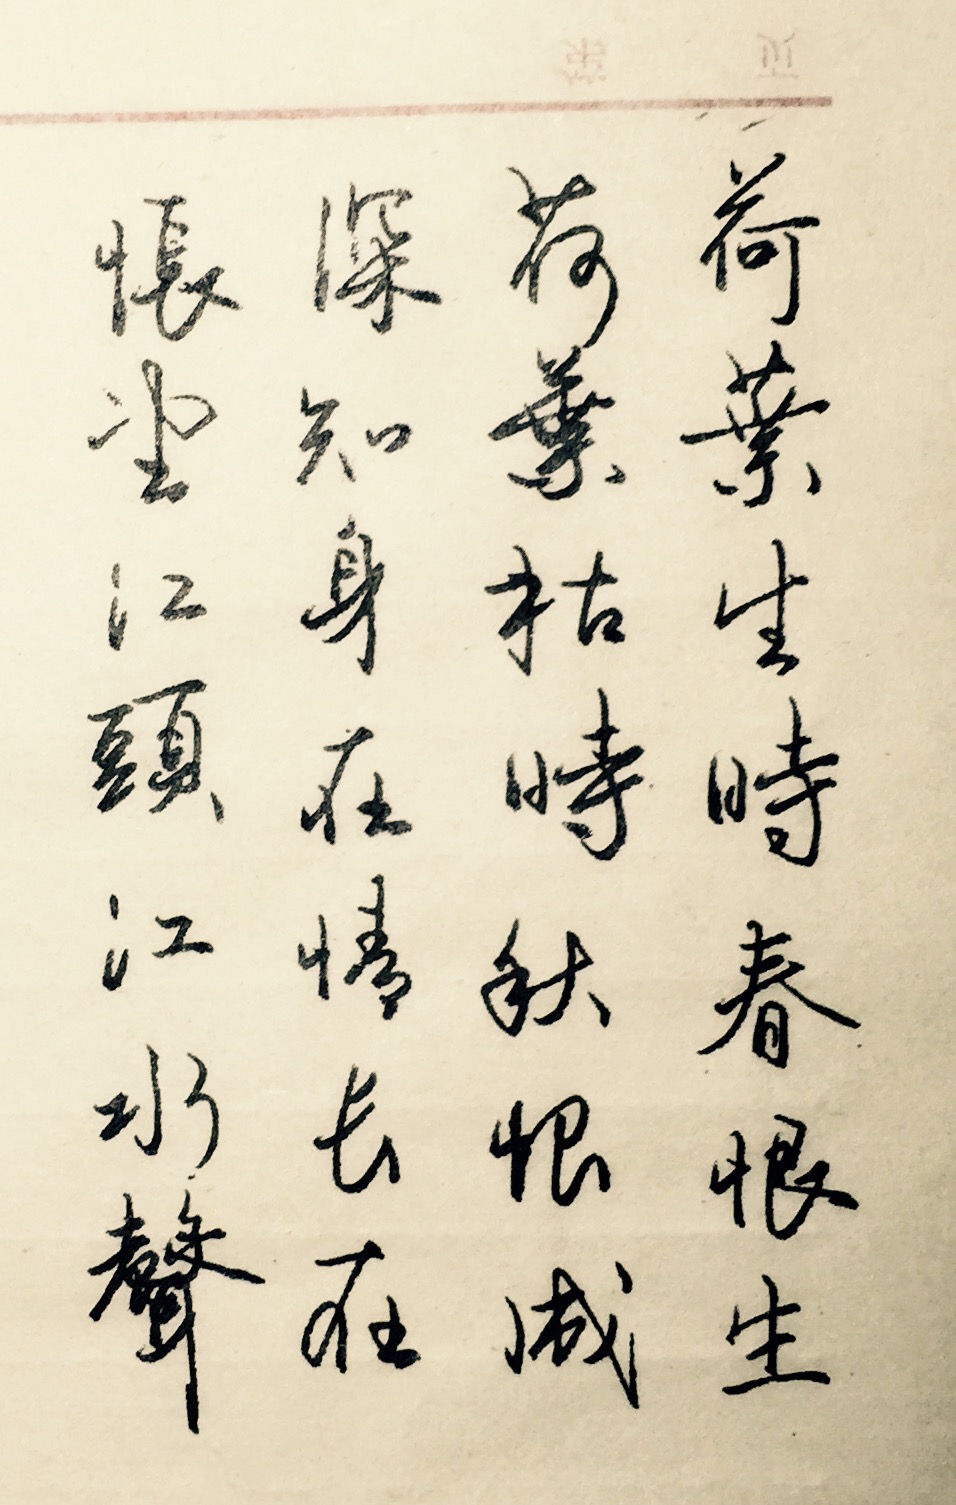 荷葉生時春恨生
荷葉枯時秋恨成
深知身在情长在
悵坐江頭江水聲